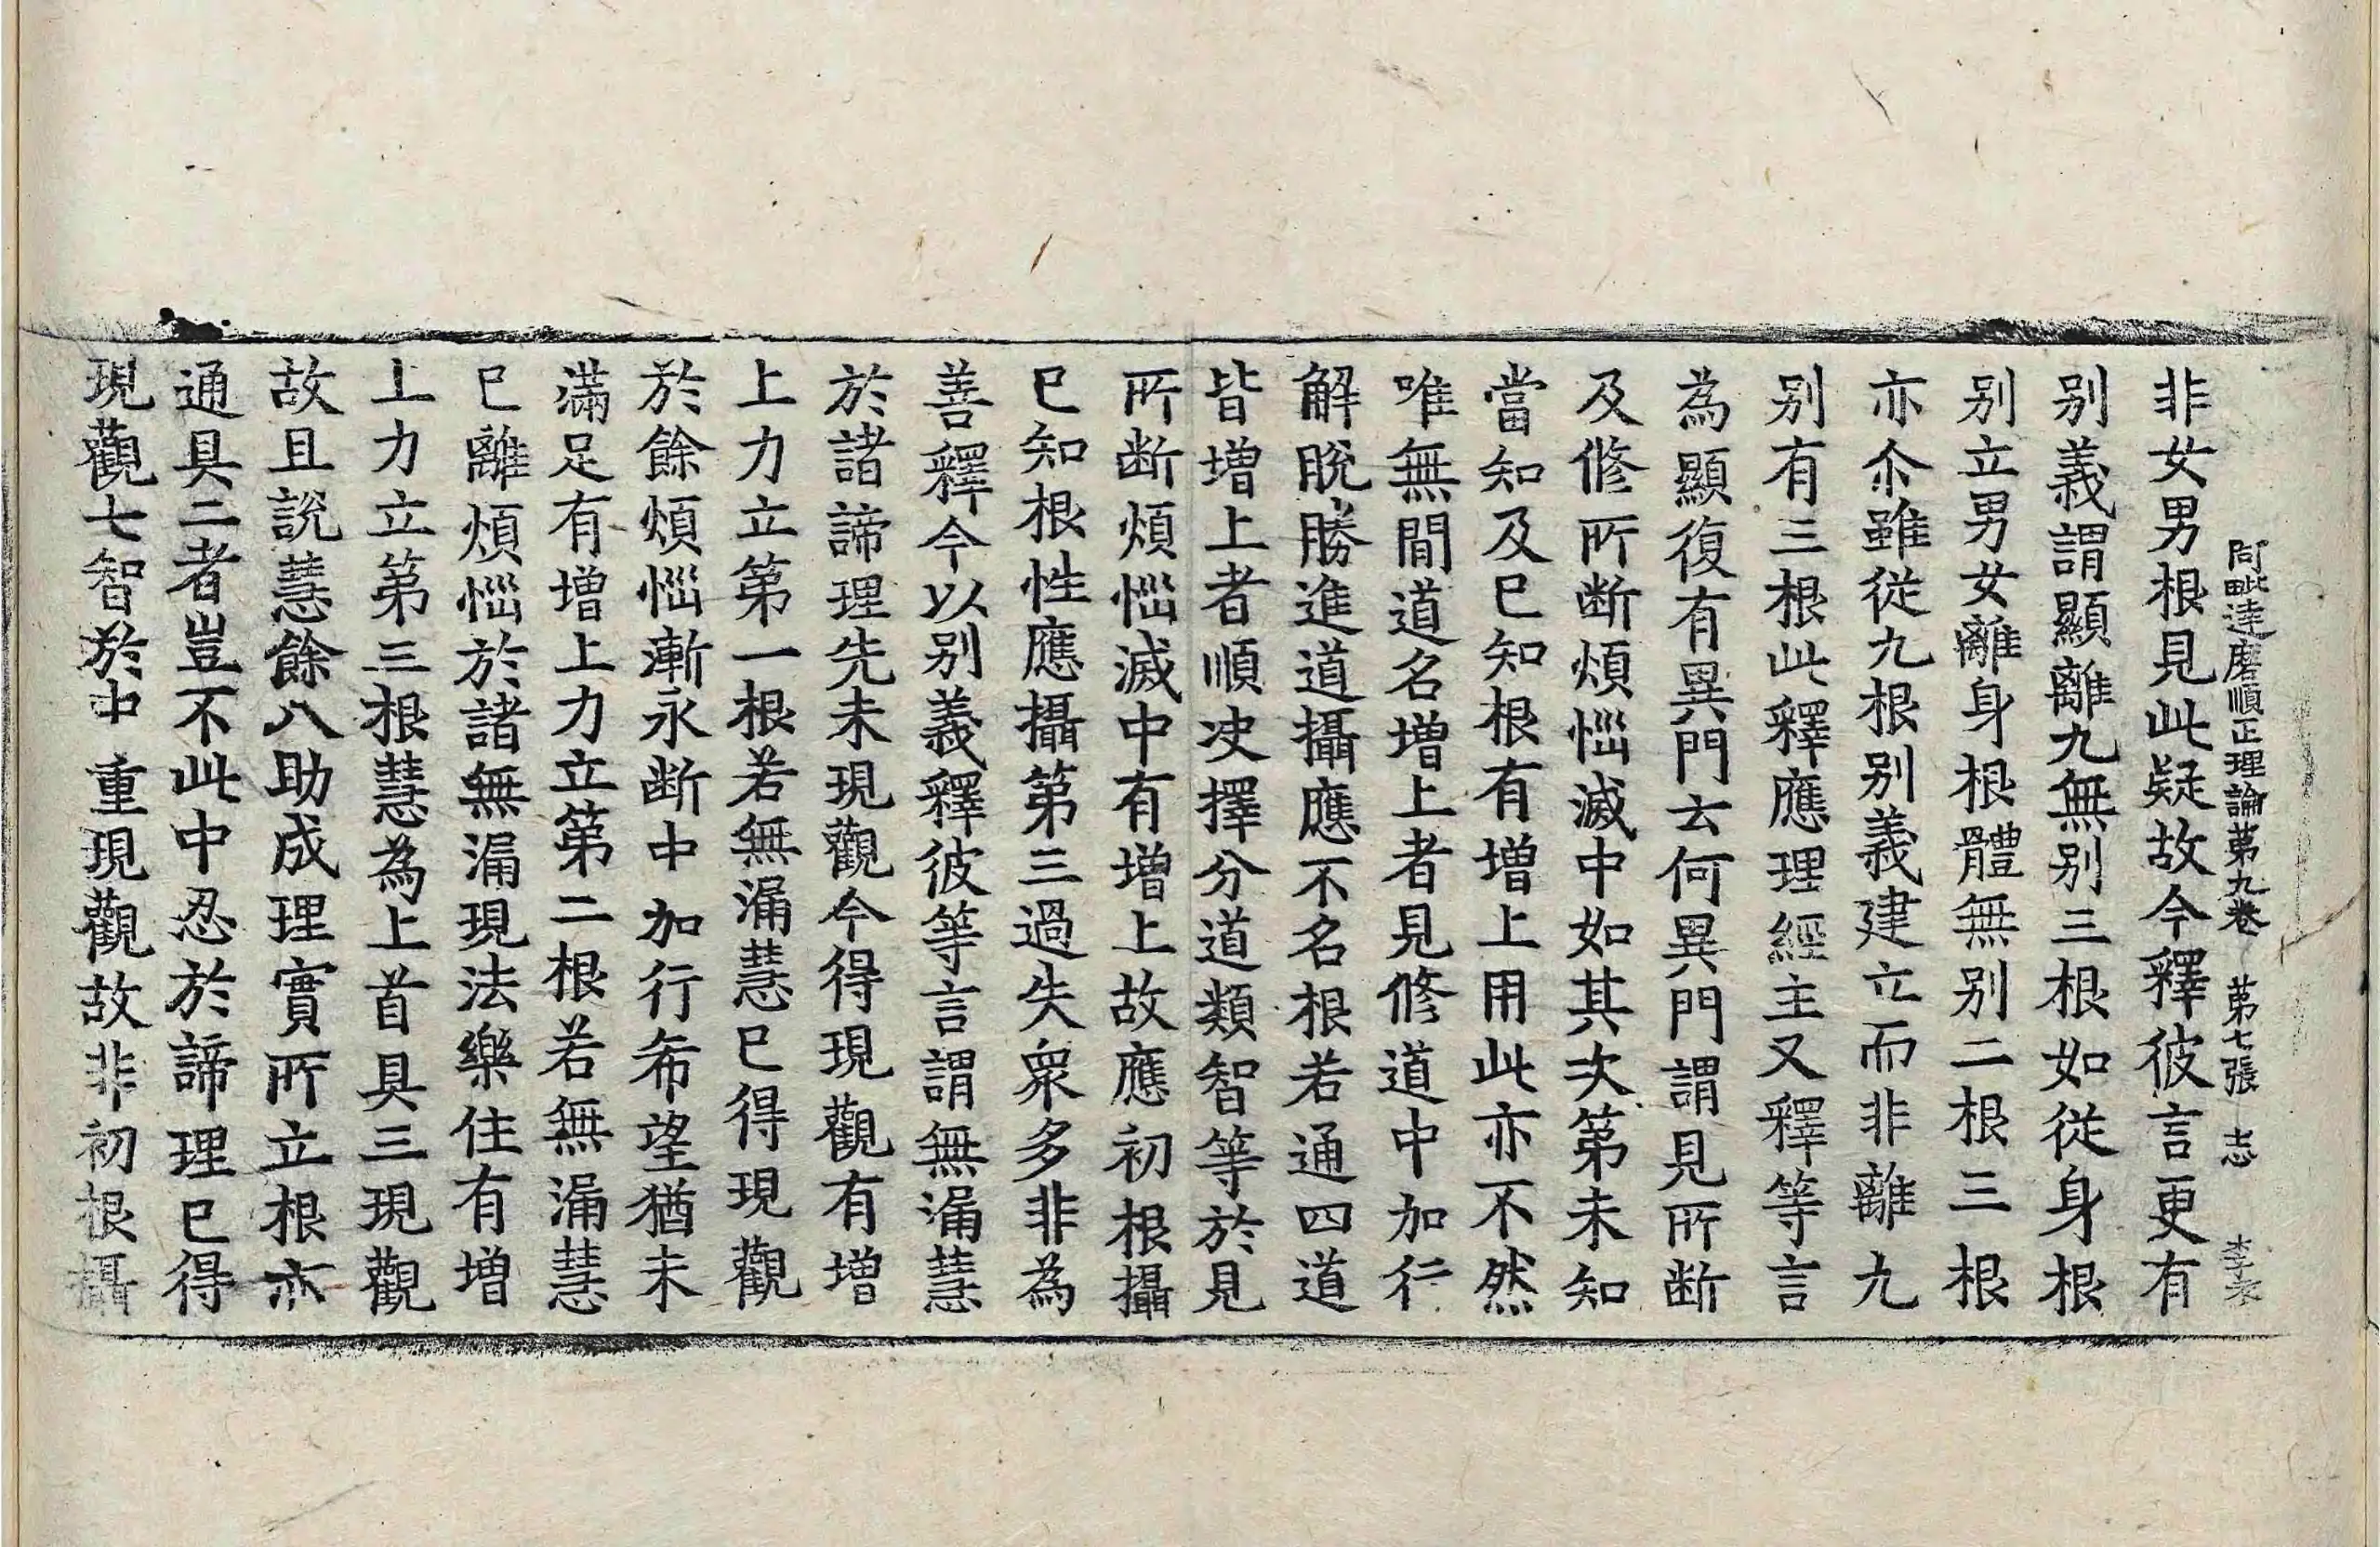 阿毗達磨順正理論第九卷 第七張 志 李表
非女男根見此疑故今釋彼言更有
别義謂顯離九無别三根如從身根
别立男女離身根體無别二根三根
亦尒雖從九根别義建立而非離九
别有三根此釋應理經主又釋等言
為顯復有異門云何異門謂見所断
及修所断煩惱滅中如其次第未知
當知及已知根有增上用此亦不然
唯無間道名增上者見修道中加行
解脫勝進道攝應不名根若通四道
皆增上者順决擇分道類智等於見
所断煩惱滅中有增上故應初根攝
已知根性應攝第三過失衆多非為
善釋今以别義釋彼等言謂無漏慧
於諸諦理先未現觀今得現觀有增
上力立第一根若無漏慧已得現觀
於餘煩惱漸永断中加行希望猶未
滿足有增上力立第二根若無漏慧
已離煩惱於諸無漏現法樂住有增
上力立第三根慧為上首具三現觀
故且說慧餘八助成理實所立根亦
通具二者豈不此中忍於諦理已得
現觀七智於中重現觀故非初根攝